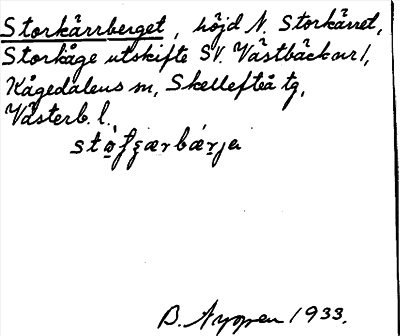 Storkärrberget, höjd N. Storkärret,
Storkåge utskifte SV. Västbäcken/,
Kågedalens sn, Skellefteå tg,
Västerb. l.
B. Nyman 1933.